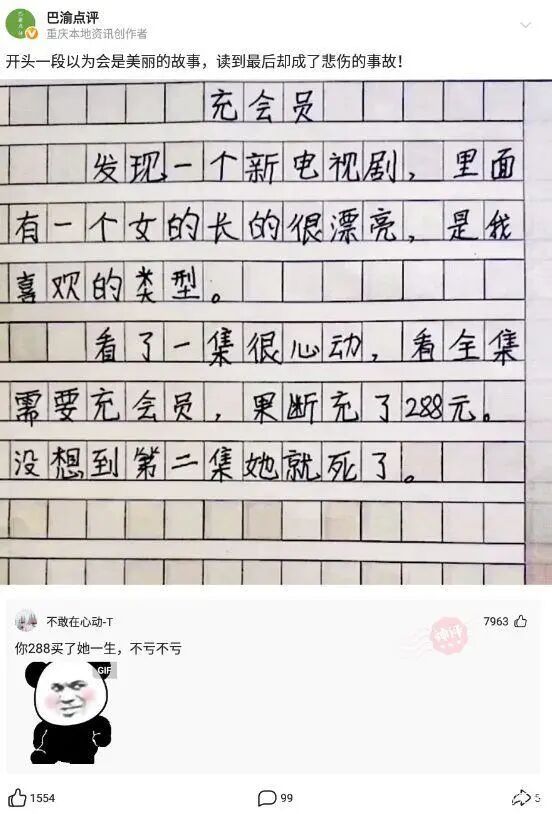 巴渝点评
重庆本地资讯创作者
开头一段以为会是美丽的故事，读到最后却成了悲伤的事故！
充会员
发现一个新电视剧，里面
有一个女的长的很漂亮，是我
喜欢的类型。
看了一集很心动，看全集
需要充会员，果断充了288元。
没想到第二集她就死了。
不敢在心动-T
神评
7963
你288买了她一生，不亏不亏
GIF
1554
99
5